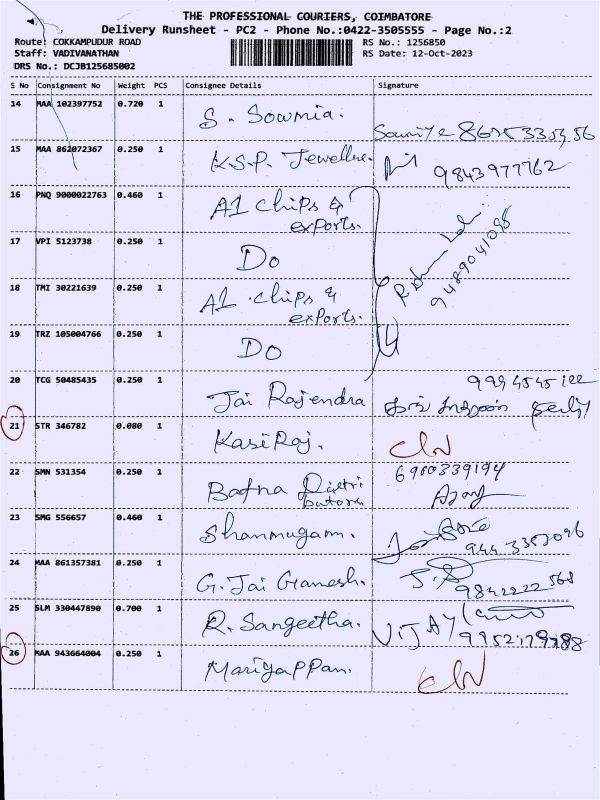 THE PROFESSIONAL COURIERS, COIMBATORE
Delivery Runsheet - PC2 - Phone No.:0422-3505555 - Page No.:2
Route: COKKAMPUDUR ROAD
RS No.: 1256850
Staff: VADIVANATHAN
RS Date: 12-Oct-2023
DRS No.: DCJB125685002
S No Consignment No Weight PCS Consignee Details Signature
14 MAA 102397752 0.720 1 S. Sowmia.
15 MAA 862072367 0.250 1 K.S.P. Jewellre. 9843977762
16 PNQ 9000022763 0.460 1 A1 chips &
exports.
17 VPI 5123738 0.250 1 Do 9489041098
18 TMI 30221639 0.250 1 A1 chips &
exports.
19 TRZ 105004766 0.250 1 Do
20 TCG 50485435 0.250 1 Jai Rajendra
21 STR 346782 0.080 1 Kasi Raj.
22 SMN 531354 0.250 1 Bafna 6980339194
23 SMG 556657 0.460 1 Shanmugam.
24 MAA 861357381 0.250 1 G. Jai Ganesh. 9842222568
25 SLM 330447890 0.700 1 R. Sangeetha. VIJAY
26 MAA 943664004 0.250 1 Mariyappan.